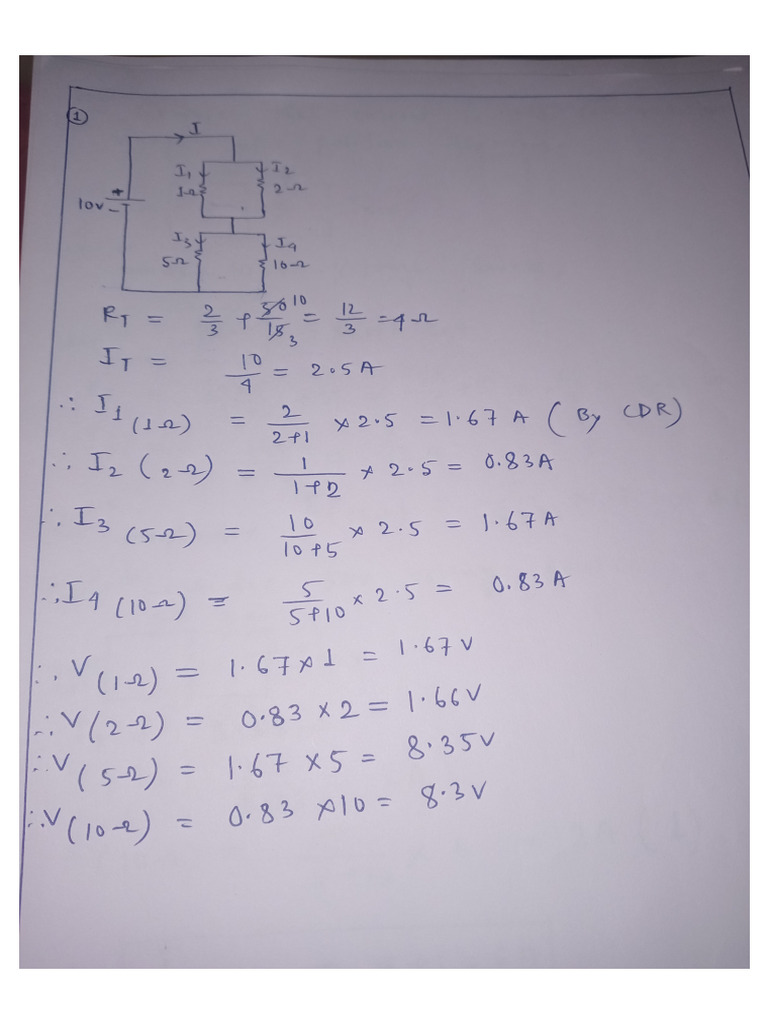 1
I
I1 I2
1Ω 2Ω
+
10v
-
I3 I4
5Ω 10Ω
RT = 2/3 + 50/15 10/3 = 12/3 = 4Ω
IT = 10/4 = 2.5A
∴ I1 (1Ω) = 2/2+1 × 2.5 = 1.67 A ( By CDR)
∴ I2 (2Ω) = 1/1+2 × 2.5 = 0.83A
∴ I3 (5Ω) = 10/10+5 × 2.5 = 1.67A
∴ I4 (10Ω) = 5/5+10 × 2.5 = 0.83A
∴ V(1Ω) = 1.67×1 = 1.67V
∴ V(2Ω) = 0.83 × 2 = 1.66V
∴ V(5Ω) = 1.67 × 5 = 8.35V
∴ V(10Ω) = 0.83 ×10 = 8.3V